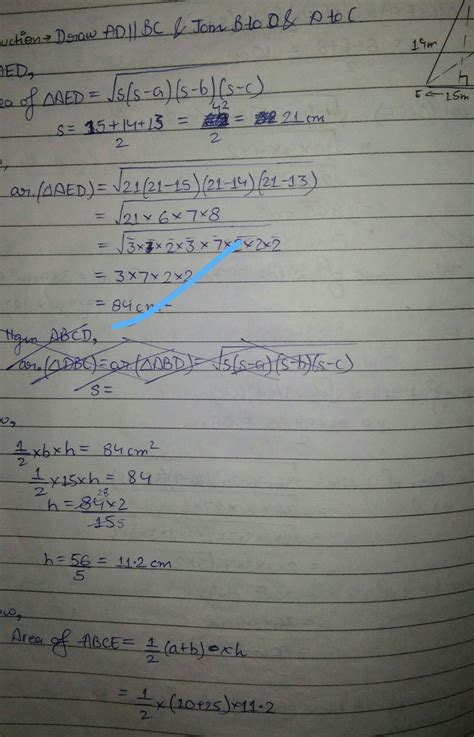 uction→ Draw AD||BC & Join B to D & A to C
14m
AED,
E ← 15m
ea of △AED = √s(s-a)(s-b)(s-c)
s = 15+14+13/2 = 42/2 = 21 cm
ar.(△AED) = √21(21-15)(21-14)(21-13)
= √21×6×7×8
= √3×7×2×3×7×2×2×2
= 3×7×2×2
= 84cm²
||gm ABCD,
ar.(△DBC)=ar(△ABD)=√s(s-a)(s-b)(s-c)
s=
1/2×b×h= 84cm²
1/2×15×h= 84
28
h= 84×2/15 5
h= 56/5 = 11.2 cm
Area of ABCE= 1/2(a+b)×h
= 1/2×(20+25)×11.2